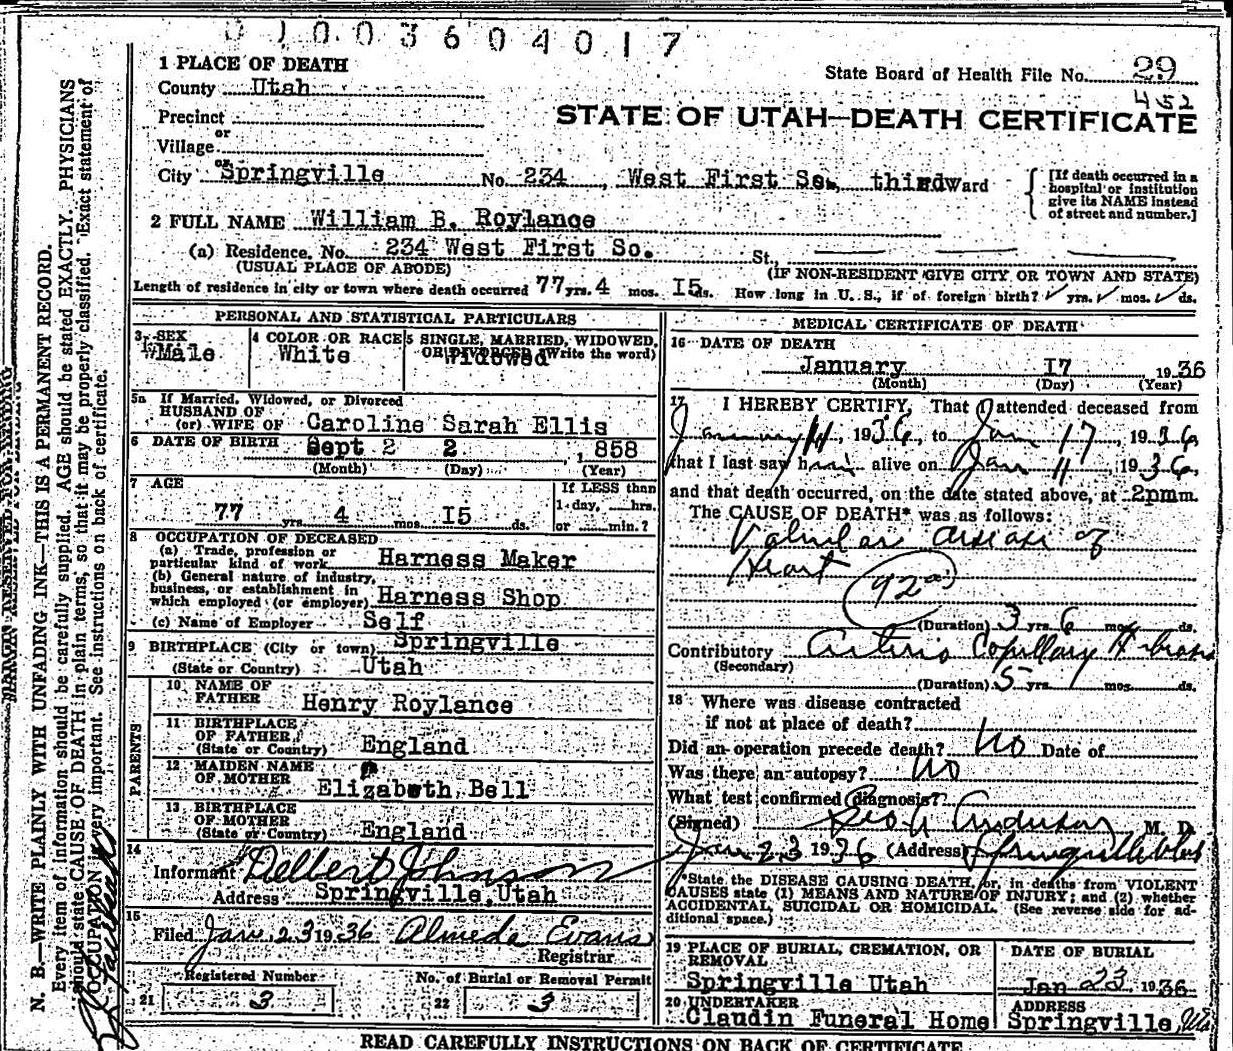 01003604017
1 PLACE OF DEATH
State Board of Health File No. 29
County Utah
452
STATE OF UTAH—DEATH CERTIFICATE
Precinct
or
Village
or
City Springville No. 234, West First So. third Ward
[If death occurred in a hospital or institution give its NAME instead of street and number.]
2 FULL NAME William B. Roylance
(a) Residence, No. 234 West First So. St.,
(USUAL PLACE OF ABODE) (IF NON-RESIDENT GIVE CITY OR TOWN AND STATE)
Length of residence in city or town where death occurred 77 yrs. 4 mos. I5 ds. How long in U. S., if of foreign birth? yrs. mos. ds.
PERSONAL AND STATISTICAL PARTICULARS
3 SEX
Male
4 COLOR OR RACE
White
5 SINGLE, MARRIED, WIDOWED,
OR DIVORCED (Write the word)
Widowed
5a If Married, Widowed, or Divorced
HUSBAND OF
(or) WIFE OF Caroline Sarah Ellis
6 DATE OF BIRTH Sept 2 2 1 858
(Month) (Day) (Year)
7 AGE
77 yrs. 4 mos. I5 ds.
If LESS than
1 day, hrs.
or min.?
8 OCCUPATION OF DECEASED
(a) Trade, profession or
particular kind of work Harness Maker
(b) General nature of industry,
business, or establishment in
which employed (or employer) Harness Shop
(c) Name of Employer Self
9 BIRTHPLACE (City or town) Springville
(State or Country) Utah
PARENTS
10 NAME OF
FATHER Henry Roylance
11 BIRTHPLACE
OF FATHER,
(State or Country) England
12 MAIDEN NAME
OF MOTHER Elizabeth Bell
13 BIRTHPLACE
OF MOTHER
(State or Country) England
14
Informant Delbert Johnson
Address Springville, Utah
15
Filed Jan. 23 1936 Almeda Evans
Registrar
Registered Number
21 3
No. of Burial or Removal Permit
22 3
MEDICAL CERTIFICATE OF DEATH
16 DATE OF DEATH
January I7 1936
(Month) (Day) (Year)
17 I HEREBY CERTIFY, That I attended deceased from
January 11, 1936, to Jan 17, 1936
that I last saw him alive on Jan 11, 1936,
and that death occurred, on the date stated above, at 2pm m.
The CAUSE OF DEATH* was as follows:
Valvular disease of
Heart
92a
(Duration) 3 yrs. 6 mos. ds.
Contributory Arterio Capillary Fibrosis
(Secondary)
(Duration) 5 yrs. mos. ds.
18 Where was disease contracted
if not at place of death?
Did an operation precede death? No Date of
Was there an autopsy? No
What test confirmed diagnosis?
(Signed) Geo. Anderson M. D.
Jan 23 1936 (Address) Springville Utah
*State the DISEASE CAUSING DEATH, or, in deaths from VIOLENT
CAUSES state (1) MEANS AND NATURE OF INJURY; and (2) whether
ACCIDENTAL, SUICIDAL OR HOMICIDAL. (See reverse side for ad-
ditional space.)
19 PLACE OF BURIAL, CREMATION, OR
REMOVAL
Springville Utah
DATE OF BURIAL
Jan 23, 1936
20 UNDERTAKER
Claudin Funeral Home
ADDRESS
Springville, Uta
READ CAREFULLY INSTRUCTIONS ON BACK OF CERTIFICATE
MARGIN RESERVED FOR BINDING
N. B.—WRITE PLAINLY WITH UNFADING INK—THIS IS A PERMANENT RECORD.
Every item of information should be carefully supplied. AGE should be stated EXACTLY. PHYSICIANS
should state CAUSE OF DEATH in plain terms, so that it may be properly classified. Exact statement of
OCCUPATION is very important. See instructions on back of certificate.